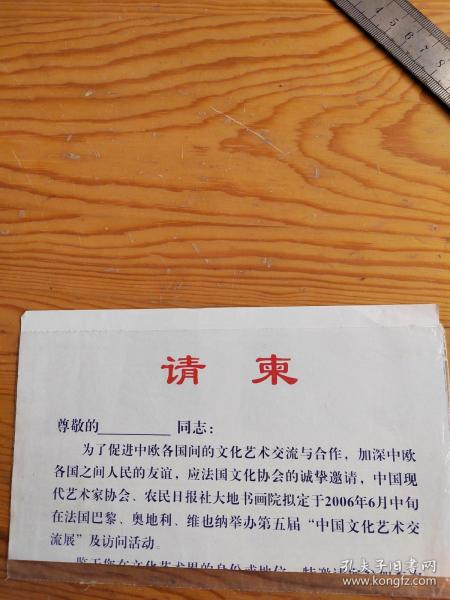 4 5 6 7 8
请 柬
尊敬的 同志：
为了促进中欧各国间的文化艺术交流与合作，加深中欧
各国之间人民的友谊，应法国文化协会的诚挚邀请，中国现
代艺术家协会、农民日报社大地书画院拟定于2006年6月中旬
在法国巴黎、奥地利、维也纳举办第五届“中国文化艺术交
流展”及访问活动。
鉴于您在文化艺术界的身份或地位，特邀
孔夫子旧书网